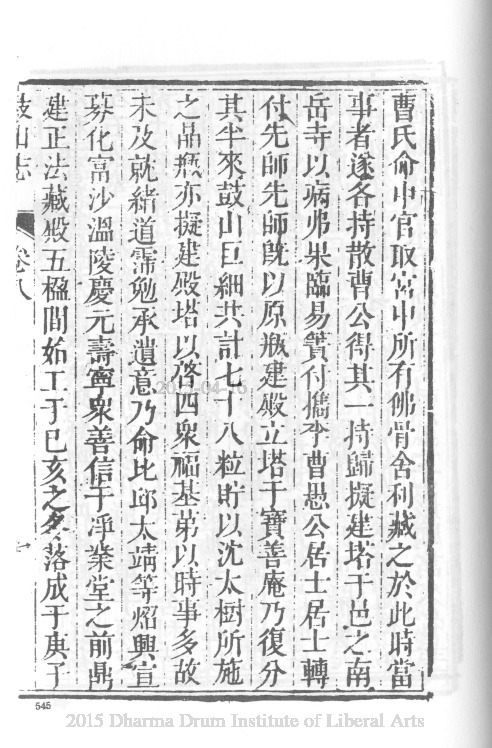 曹氏命中官取宮中所有佛骨舍利藏之於此時當
事者遂各持散曹公得其一持歸擬建塔于邑之南
岳寺以病弗果臨易簀付攜李曹愚公居士居士轉
付先師先師旣以原瓶建殿立塔于寶善庵乃復分
其半來鼓山巨細共計七十八粒貯以沈太樹所施
之晶瓶亦擬建殿塔以啓四衆福基第以時事多故
未及就緒道霈勉承遺意乃命比邱太靖等炤興宣
募化富沙溫陵慶元壽寧衆善信于淨業堂之前鼎
建正法藏殿五楹間始工于已亥之冬落成于庚子
鼓山志
卷八
545
2015 Dharma Drum Institute of Liberal Arts